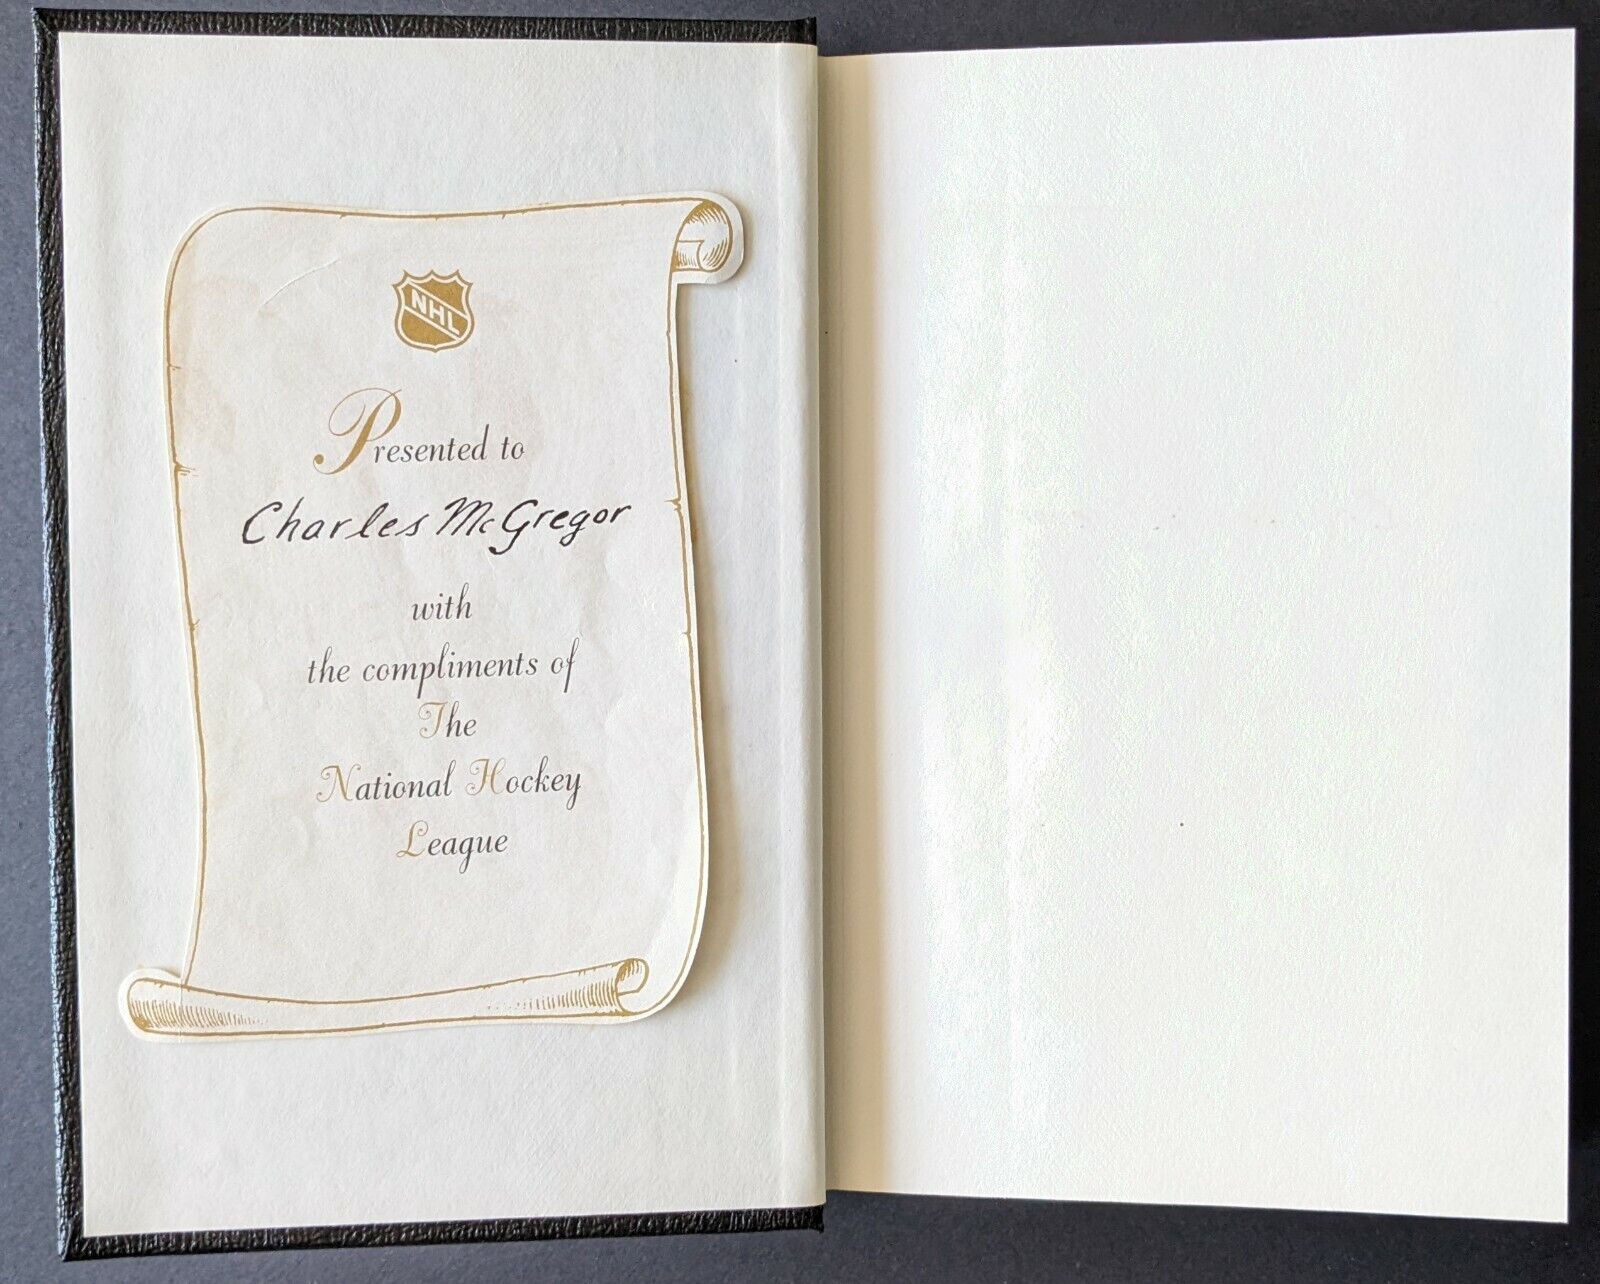 NHL
Presented to
Charles McGregor
with
the compliments of
The
National Hockey
League